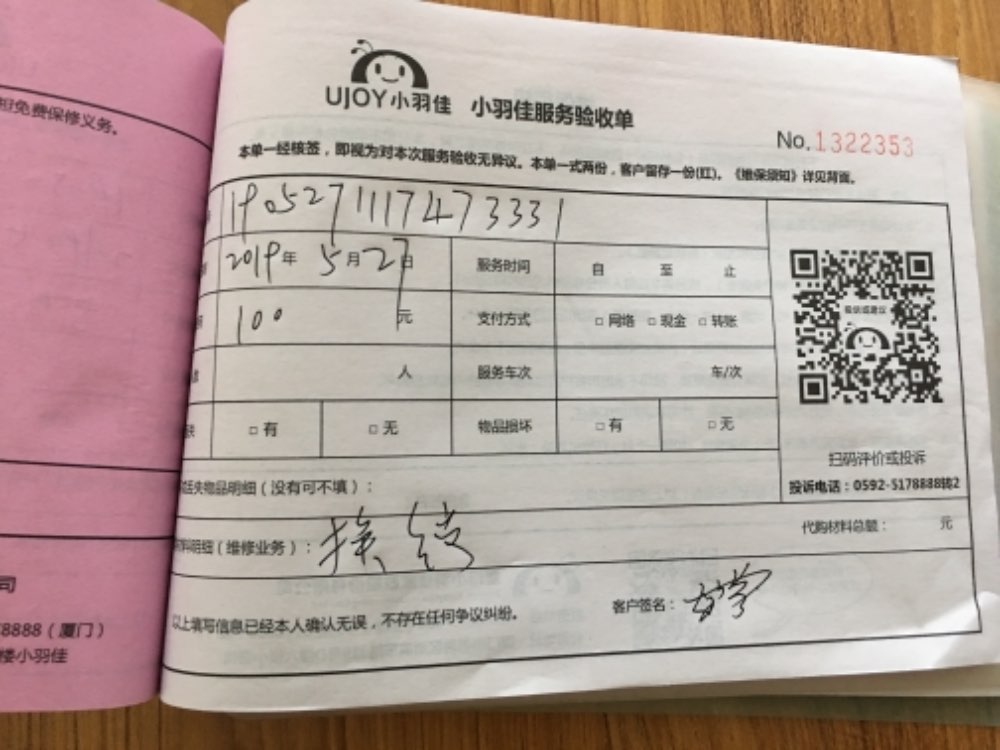 担免费保修义务。
司
8888（厦门）
楼小羽佳
UJOY小羽佳 小羽佳服务验收单
No.1322353
本单一经核签，即视为对本次服务验收无异议。本单一式两份，客户留存一份(红)。《维保须知》详见背面。
1905271117473331
2019年 5月27日 服务时间 自 至 止
100 元 支付方式 □网络 □现金 □转账
人 服务车次 车/次
□有 □无 物品损坏 □有 □无
扫码评价或投诉
投诉电话：0592-5178888转2
丢失物品明细（没有可不填）：
料明细（维修业务）：换 代购材料总额： 元
以上填写信息已经本人确认无误，不存在任何争议纠纷。 客户签名：